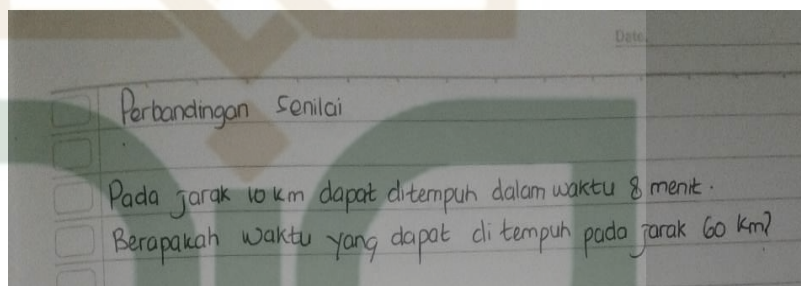 Date
Perbandingan Senilai
Pada jarak 10 km dapat ditempuh dalam waktu 8 menit.
Berapakah waktu yang dapat di tempuh pada jarak 60 km?